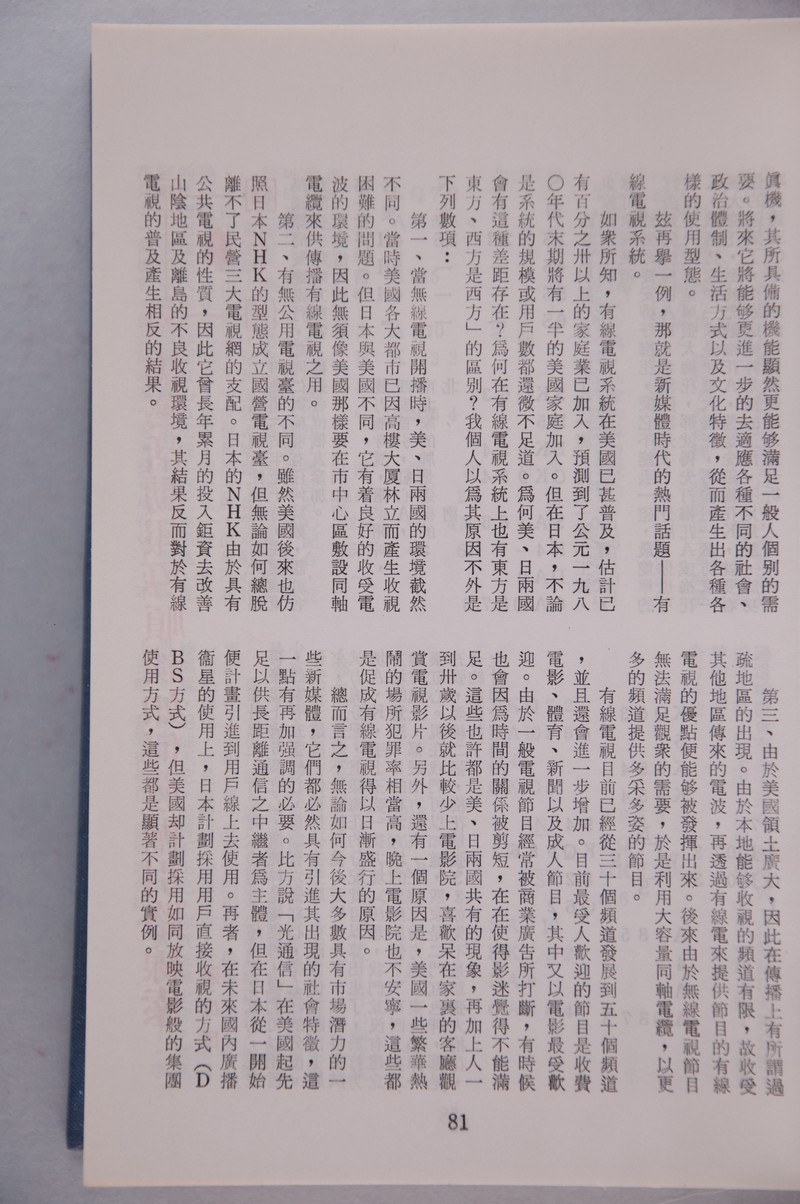 眞機，其所具備的機能顯然更能够滿足一般人個別的需
要。將來它將能够更進一步的去適應各種不同的社會、
政治體制、生活方式以及文化特徵，從而產生出各種各
樣的使用型態。
玆再擧一例，那就是新媒體時代的熱門話題——有
線電視系統。
如衆所知，有線電視系統在美國已甚普及，估計已
有百分之卅以上的家庭業已加入，預測到了公元一九八
〇年代末期將有一半的美國家庭加入。但在日本，不論
是系統的規模或用戶數都還微不足道。爲何美、日兩國
會有這種差距存在？爲何在有線電視系統上也有東方是
東方、西方是西方」的區別？我個人以爲其原因不外是
下列數項：
第一、當無線電視開播時，美、日兩國的環境截然
不同。當時美國各大都市已因高樓大厦林立而產生收視
困難的問題。但日本與美國不同，它有着良好的收受電
波的環境，因此無須像美國那樣要在市中心區敷設同軸
電纜來供傳播有線電視之用。
第二、有無公用電視臺的不同。雖然美國後來也仿
照日本NHK的型態成立國營電視臺，但無論如何總脫
離不了民營三大電視網的支配。日本的NHK由於具有
公共電視的性質，因此它曾長年累月的投入鉅資去改善
山陰地區及離島的不良收視環境，其結果反而對於有線
電視的普及產生相反的結果。
第三、由於美國領土廣大，因此在傳播上有所謂過
疏地區的出現。由於本地能够收視的頻道有限，故收受
其他地區傳來的電波，再透過有線電來提供節目的有線
電視的優點便能够被發揮出來。後來由於無線電視節目
無法滿足觀衆的需要，於是利用大容量同軸電纜，以更
多的頻道提供多采多姿的節目。
有線電視目前已經從三十個頻道發展到五十個頻道
，並且還會進一步增加。目前最受人歡迎的節目是收費
電影、體育、新聞以及成人節目，其中又以電影最受歡
迎。由於一般電視節目經常被商業廣告所打斷，有時候
也會因爲時間的關係被剪短，在在使得影迷覺得不能滿
足。這些也許都是美、日兩國共有的現象，再加上人一
到卅歲以後就比較少上電影院，喜歡呆在家裏的客廳觀
賞電視影片。另外，還有一個原因是，美國一些繁華熱
鬧的場所犯罪率相當高，晚上電影院也不安寧，這些都
是促成有線電視得以日漸盛行的原因。
總而言之，無論如何今後大多數具有市場潛力的一
些新媒體，它們都必然具有引進其出現的社會特徵，這
一點有再加强調的必要。比方說「光通信」在美國起先
足以供長距離通信之中繼者爲主體，但在日本從一開始
便計畫引進到用戶線上去使用。再者，在未來國內廣播
衞星的使用上，日本計劃採用用戶直接收視的方式（D
BS方式），但美國却計劃採用如同放映電影般的集團
使用方式，這些都是顯著不同的實例。
81